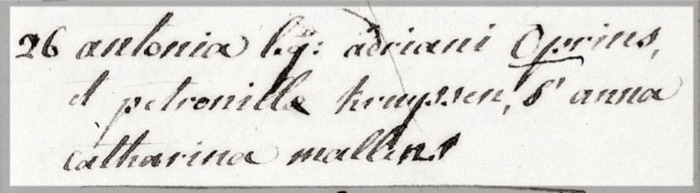 26 antonia leg: adriani Oprins,
et petronilla kruyssen, S' anna
catharina mallens